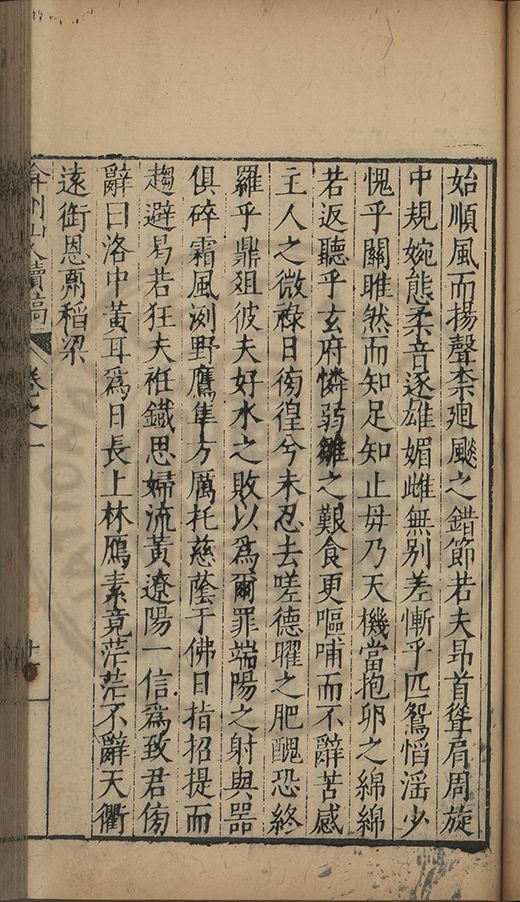 始順風而揚聲柰廻颷之錯節若夫昂首聳肩周旋
中規婉態柔音逐雄媚雌無别差慚乎匹鴛慆滛少
愧乎關雎然而知足知止毋乃天機當抱卵之綿綿
若返聽乎玄府憐弱雛之艱食更嘔哺而不辭苦感
主人之微祿日徬徨兮未忍去嗟德曜之肥醜恐終
羅乎鼎俎彼夫好水之敗以爲爾罪端陽之射與噐
俱碎霜風冽野鷹隼方厲托慈蔭于佛日指招提而
趨避曷若狂夫袵鐵思婦流黃遼陽一信爲致君傍
辭曰洛中黃耳爲日長上林鴈素竟茫茫不辭天衢
遠銜恩鬻稻粱
弇州山人續稿 卷之一